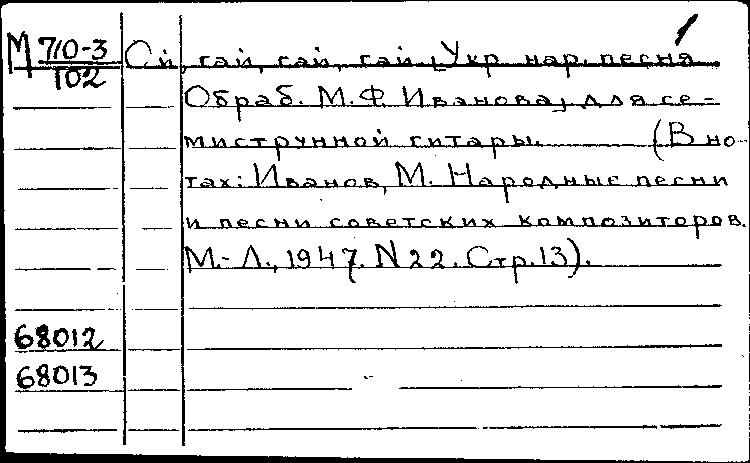 1
М 710-3
102
Ой, гай, гай, гай. [Укр. нар. песня
Обраб. М.Ф. Иванова, для се-
миструнной гитары. (В но-
тах: Иванов, М. Народные песни
и песни советских композиторов.
М.-Л., 1947. N22. Стр.13).
68012
68013